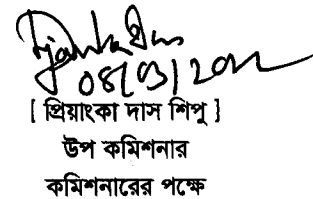 08/03/2022
[ প্রিয়াংকা দাস শিপু ]
উপ কমিশনার
কমিশনারের পক্ষে